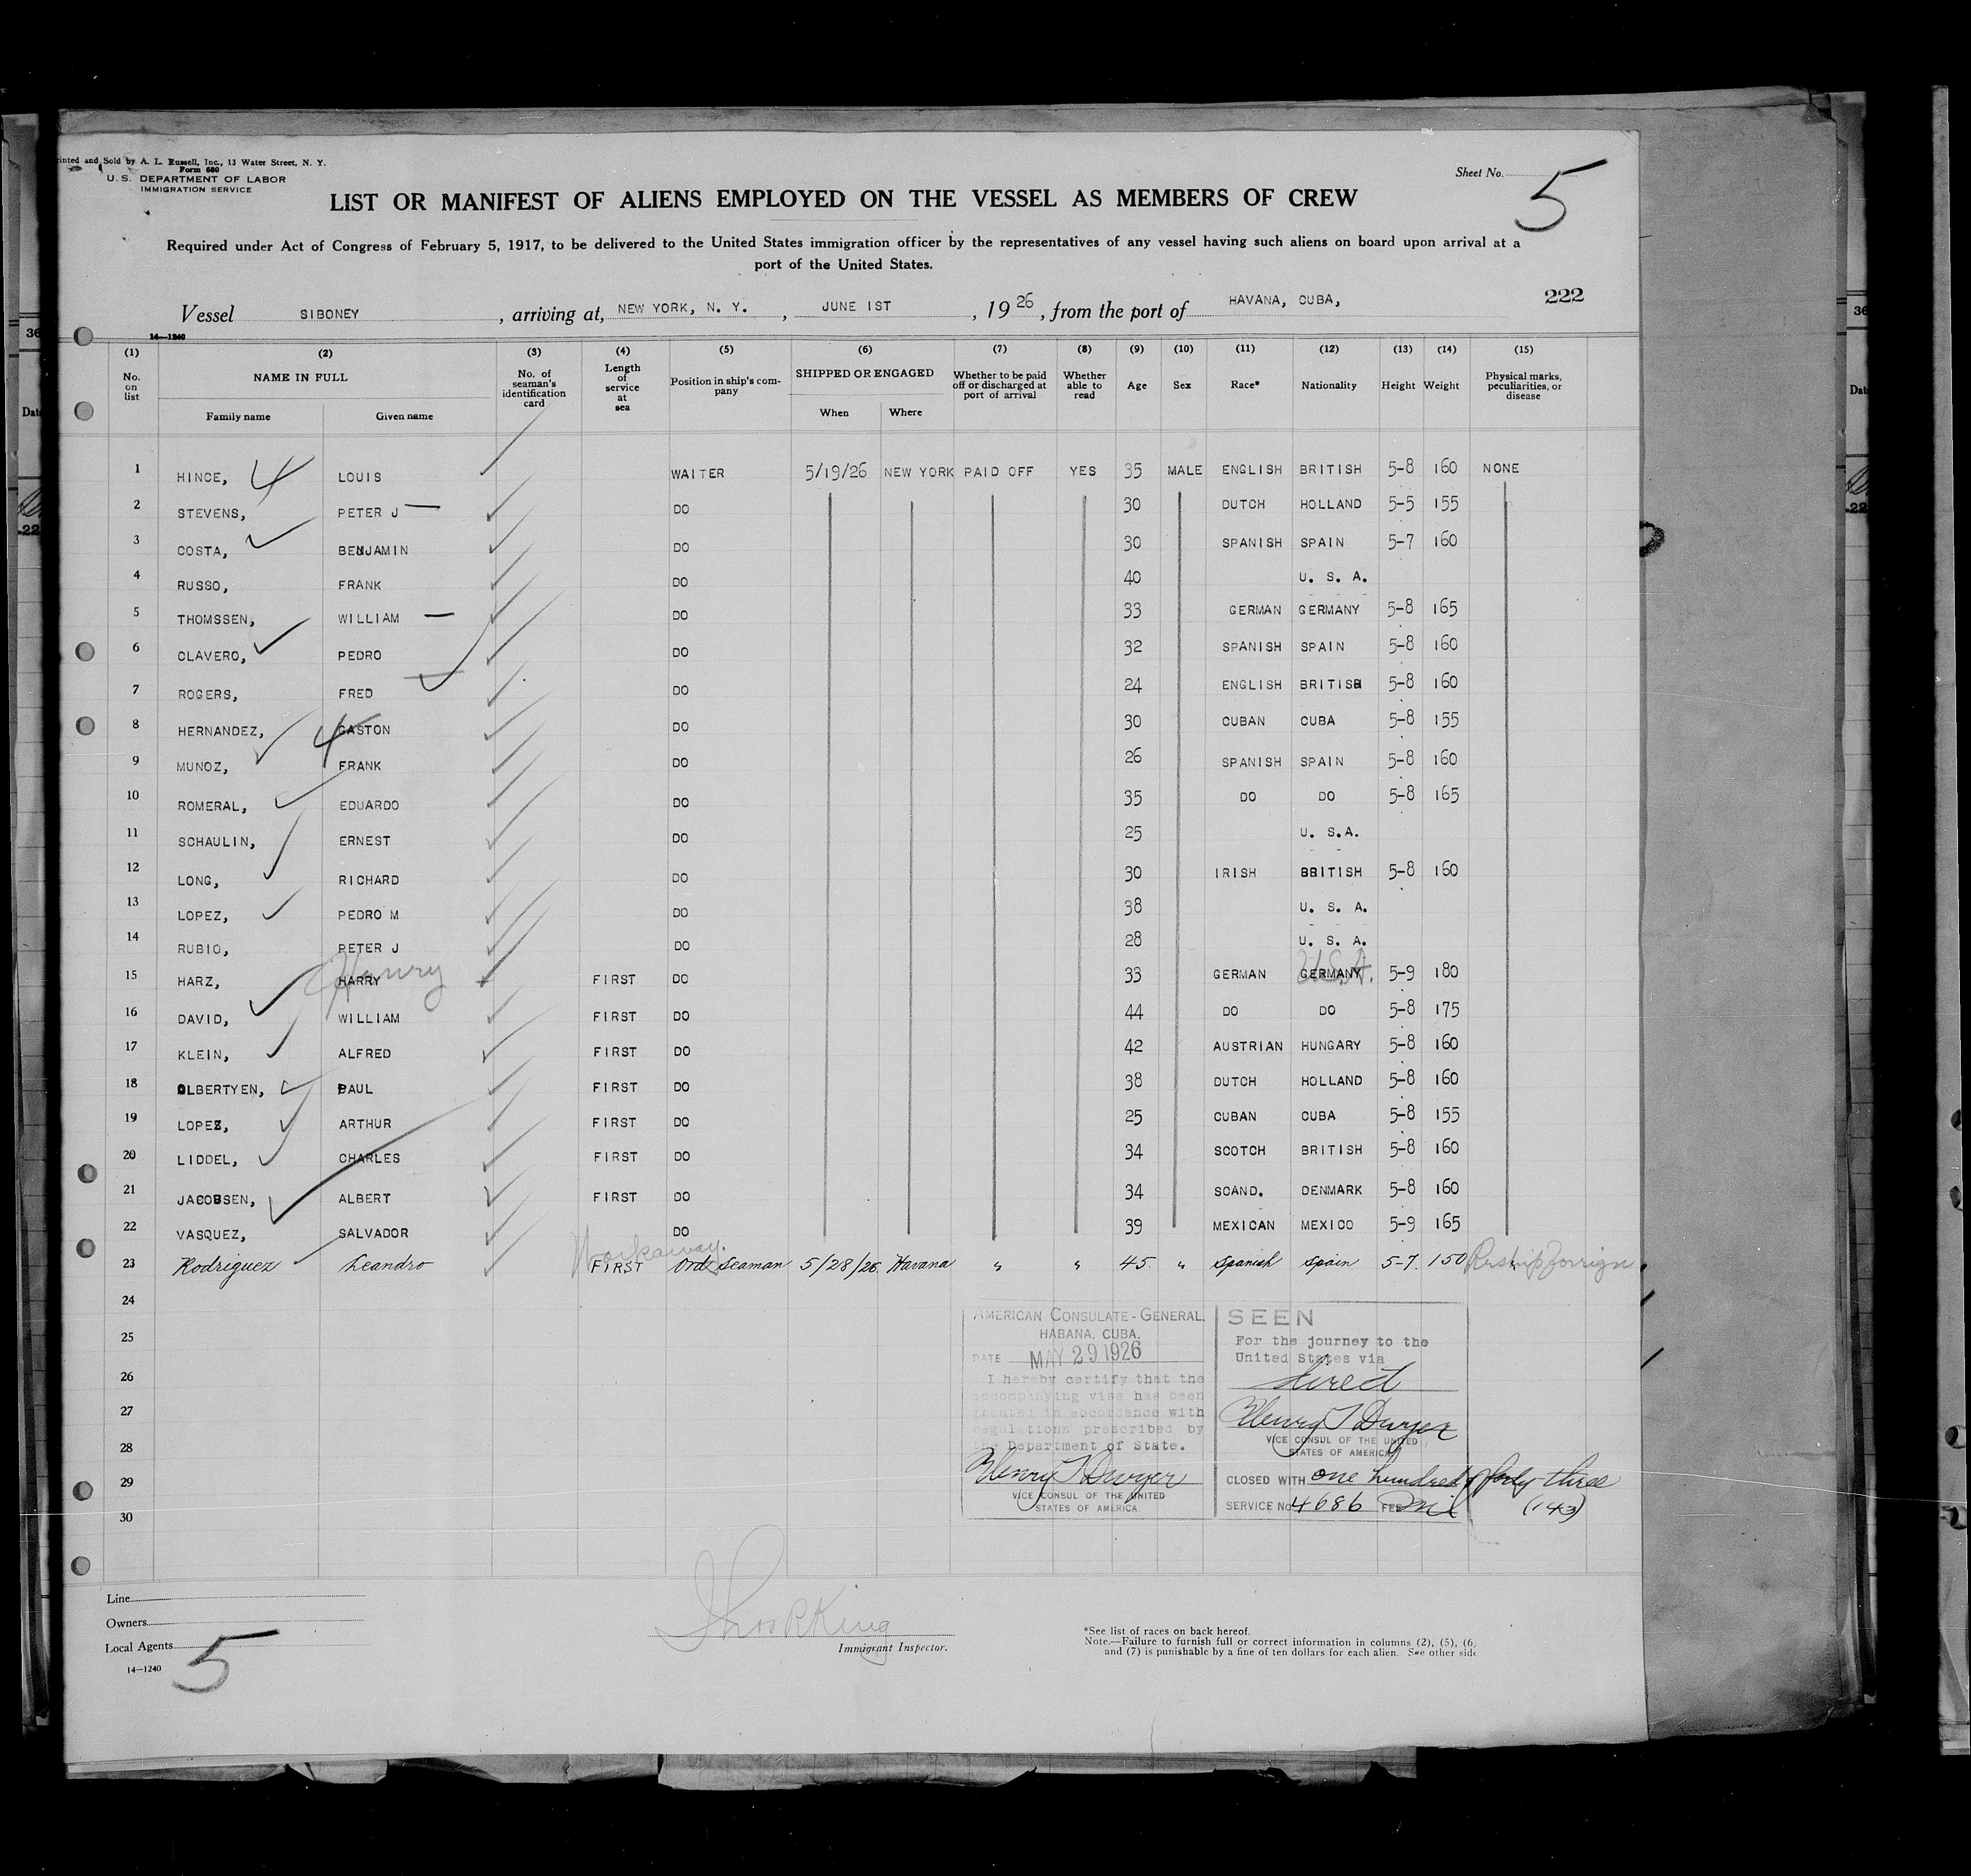 Printed and Sold by A. L. Russell, Inc., 13 Water Street, N. Y.
Form 680
U. S. DEPARTMENT OF LABOR
IMMIGRATION SERVICE
Sheet No. 5
LIST OR MANIFEST OF ALIENS EMPLOYED ON THE VESSEL AS MEMBERS OF CREW
Required under Act of Congress of February 5, 1917, to be delivered to the United States immigration officer by the representatives of any vessel having such aliens on board upon arrival at a
port of the United States.
222
Vessel SIBONEY, arriving at, NEW YORK, N. Y., JUNE 1ST, 1926, from the port of HAVANA, CUBA,
14—1240
(1) (2) (3) (4) (5) (6) (7) (8) (9) (10) (11) (12) (13) (14) (15)
No. on list NAME IN FULL Family name Given name No. of seaman's identification card Length of service at sea Position in ship's company SHIPPED OR ENGAGED When Where Whether to be paid off or discharged at port of arrival Whether able to read Age Sex Race* Nationality Height Weight Physical marks, peculiarities, or disease
1 HINCE, 4 LOUIS WAITER 5/19/26 NEW YORK PAID OFF YES 35 MALE ENGLISH BRITISH 5-8 160 NONE
2 STEVENS, PETER J DO 30 DUTCH HOLLAND 5-5 155
3 COSTA, BENJAMIN DO 30 SPANISH SPAIN 5-7 160
4 RUSSO, FRANK DO 40 U. S. A.
5 THOMSSEN, WILLIAM DO 33 GERMAN GERMANY 5-8 165
6 CLAVERO, PEDRO DO 32 SPANISH SPAIN 5-8 160
7 ROGERS, FRED DO 24 ENGLISH BRITISH 5-8 160
8 HERNANDEZ, 4 GASTON DO 30 CUBAN CUBA 5-8 155
9 MUNOZ, FRANK DO 26 SPANISH SPAIN 5-8 160
10 ROMERAL, EDUARDO DO 35 DO DO 5-8 165
11 SCHAULIN, ERNEST DO 25 U. S.A.
12 LONG, RICHARD DO 30 IRISH BRITISH 5-8 160
13 LOPEZ, PEDRO M DO 38 U. S. A.
14 RUBIO, PETER J DO 28 U. S. A.
15 HARZ, HARRY Henry FIRST DO 33 GERMAN GERMANY U.S.A. 5-9 180
16 DAVID, WILLIAM FIRST DO 44 DO DO 5-8 175
17 KLEIN, ALFRED FIRST DO 42 AUSTRIAN HUNGARY 5-8 160
18 OLBERTYEN, PAUL FIRST DO 38 DUTCH HOLLAND 5-8 160
19 LOPEZ, ARTHUR FIRST DO 25 CUBAN CUBA 5-8 155
20 LIDDEL, CHARLES FIRST DO 34 SCOTCH BRITISH 5-8 160
21 JACOBSEN, ALBERT FIRST DO 34 SCAND. DENMARK 5-8 160
22 VASQUEZ, SALVADOR DO 39 MEXICAN MEXICO 5-9 165
Workaway.
23 Rodriguez Leandro FIRST Ord. Seaman 5/28/26 Havana " " 45 " Spanish Spain 5-7. 150 Reship foreign
24
25
26
27
28
29
30
AMERICAN CONSULATE-GENERAL,
HABANA, CUBA.
DATE MAY 29 1926
I hereby certify that the
accompanying visa has been
granted in accordance with
regulations prescribed by
the Department of State.
Henry T Dwyer
VICE CONSUL OF THE UNITED
STATES OF AMERICA
SEEN
For the journey to the
United States via
direct
Henry T Dwyer
VICE CONSUL OF THE UNITED
STATES OF AMERICA
CLOSED WITH one hundred forty three
SERVICE No 4686 FEE nil (143)
Line
Owners
Local Agents
14—1240
5
Thos R King
Immigrant Inspector.
*See list of races on back hereof.
Note.—Failure to furnish full or correct information in columns (2), (5), (6)
and (7) is punishable by a fine of ten dollars for each alien. See other side